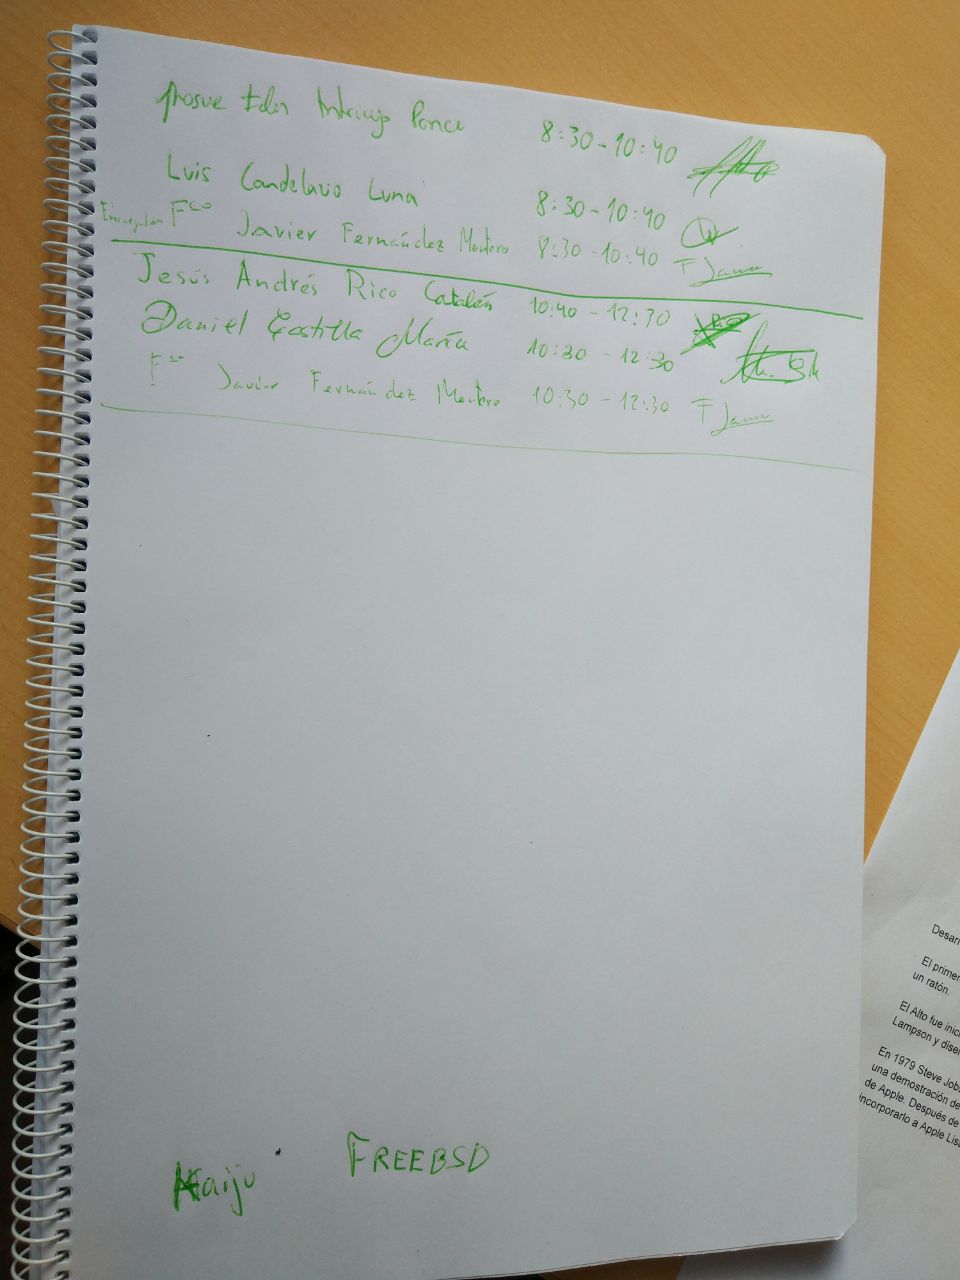 Josue Ponce 8:30-10:40
Luis Candelario Luna 8:30-10:40
Encargado Fco Javier Fernández Montero 8:30-10:40 F Javier
Jesús Andrés Rico Catalán 10:40-12:30
Daniel Castilla María 10:30-12:30
Fco Javier Fernández Montero 10:30-12:30 F Javier
Kaiju FREEBSD
Desarr
El primer
un ratón.
El Alto fue inic
Lampson y dise
En 1979 Steve Jobs
una demostración de
de Apple. Después de
incorporarlo a Apple Lisa